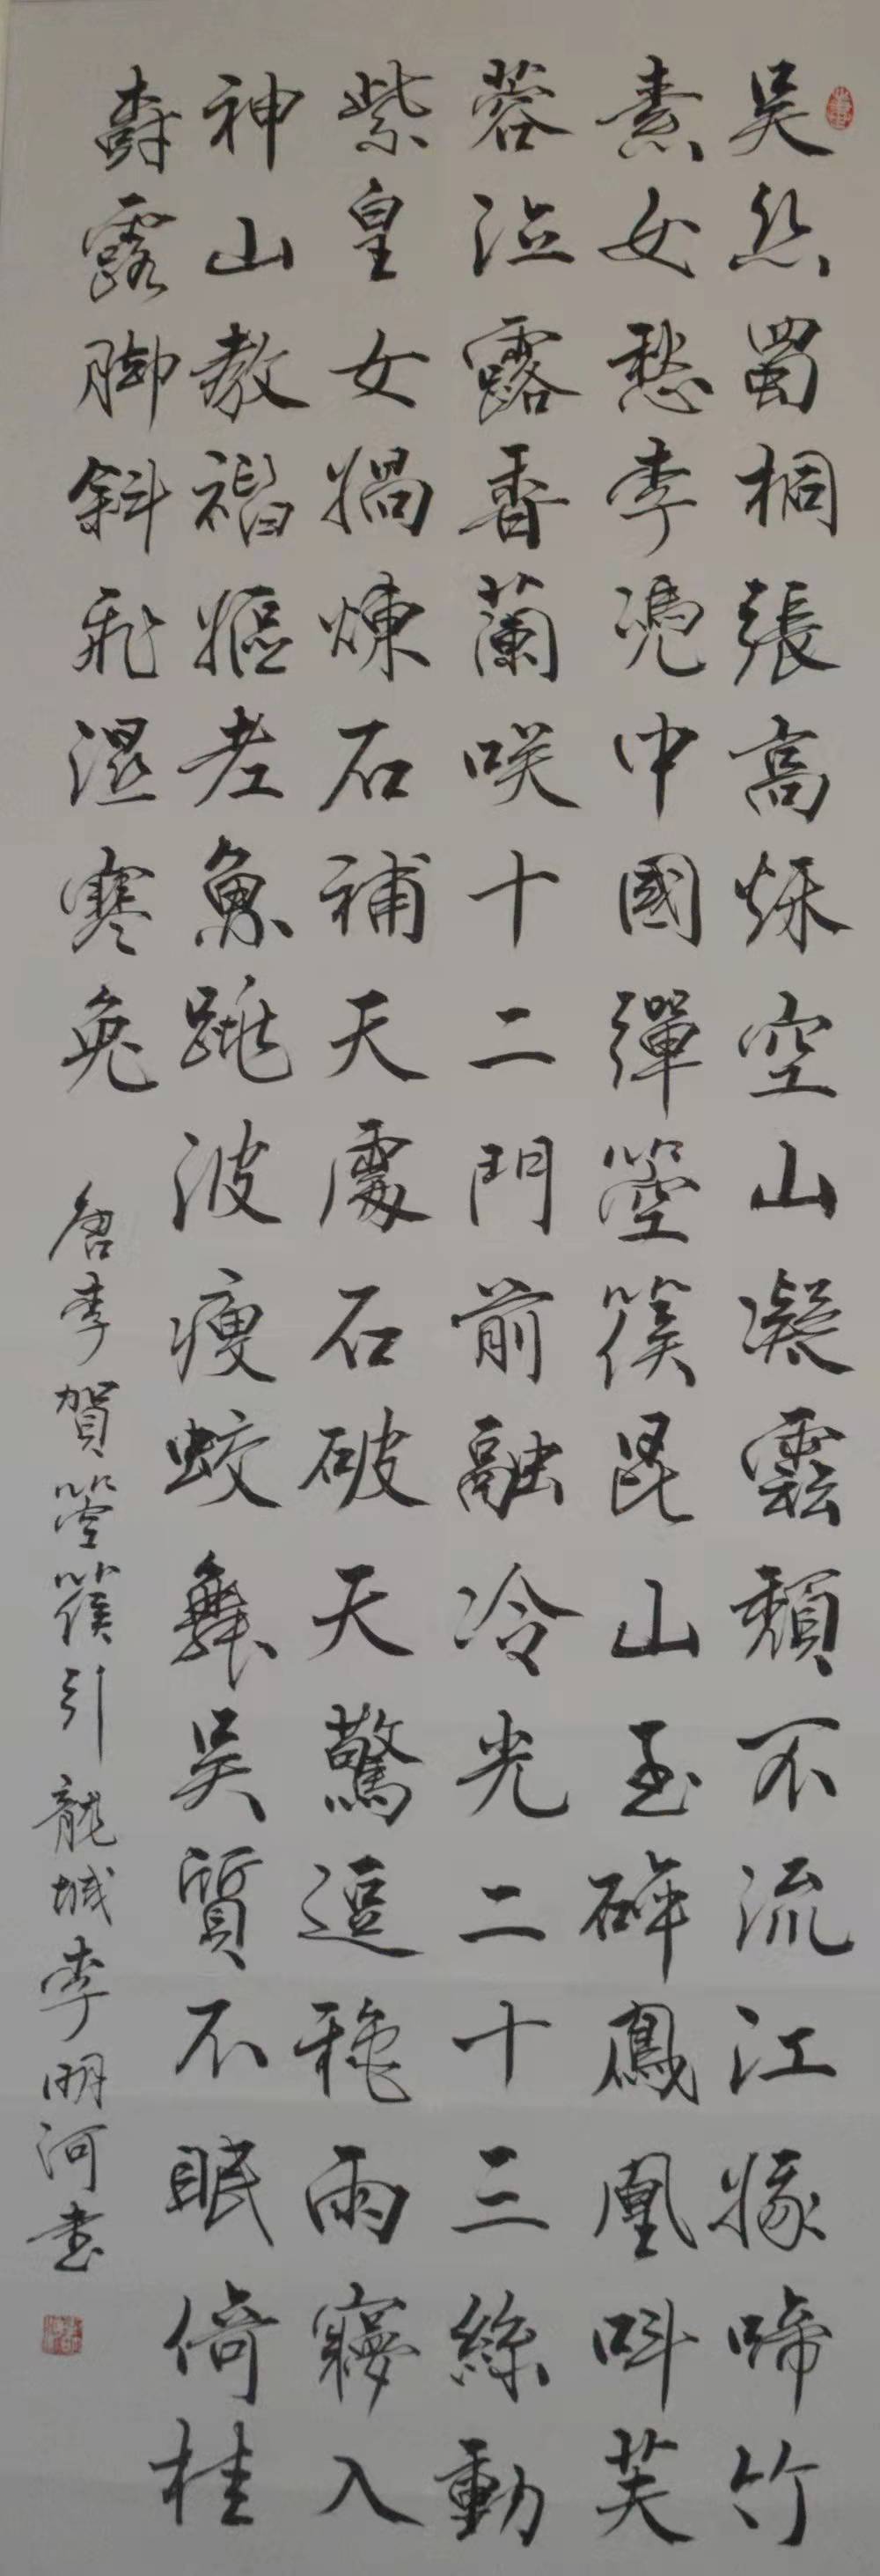 吳丝蜀桐張高秌空山凝雲頹不流江娥啼竹
素女愁李凴中國彈箜篌昆山玉碎鳳凰叫芙
蓉泣露香蘭咲十二門前融冷光二十三絲動
紫皇女媧煉石補天處石破天驚逗穐雨寢入
神山教神嫗老魚跳波瘦蛟舞吳質不眠倚桂
樹露脚斜飛濕寒兔 唐李賀箜篌引 龍城李明河書